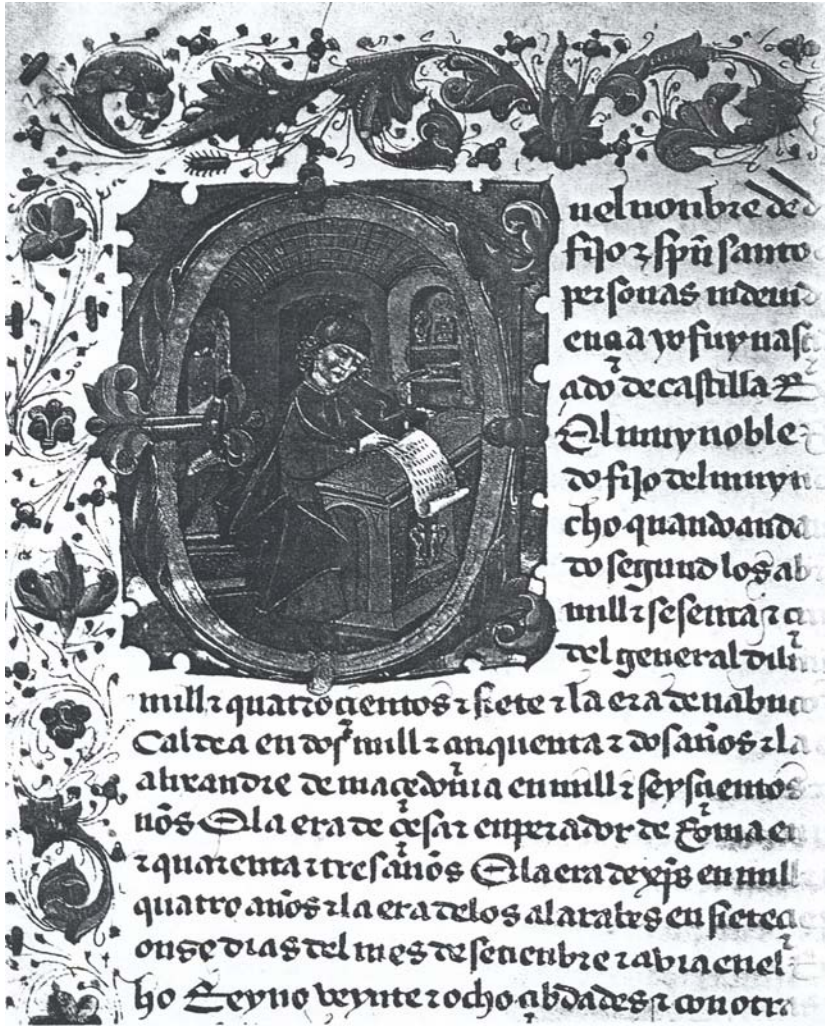 nel nonbre de d
fijo ⁊ spũ santo
personas indeuid
enga yo fuy nasc
ado de castilla E
El muy noble
do fijo del muy n
cho quando anda
do segund los ab
mill ⁊ sesenta ⁊
del general dilu
mill ⁊ quatroçientos ⁊ siete ⁊ la era de nabuc
Caldea en dos mill ⁊ çinquenta ⁊ dos años ⁊ la
alixandre de maçedonia en mill ⁊ seysçientos
nõs E la era de çesar enperador de Roma en
⁊ quarenta ⁊ tres años E la era de xp̃s en mill
quatro años ⁊ la era de los alarabes en sieteçi
onze dias del mes de setienbre ⁊ auia en el
ho Reyno veynte ⁊ ocho çibdades ⁊ con otras